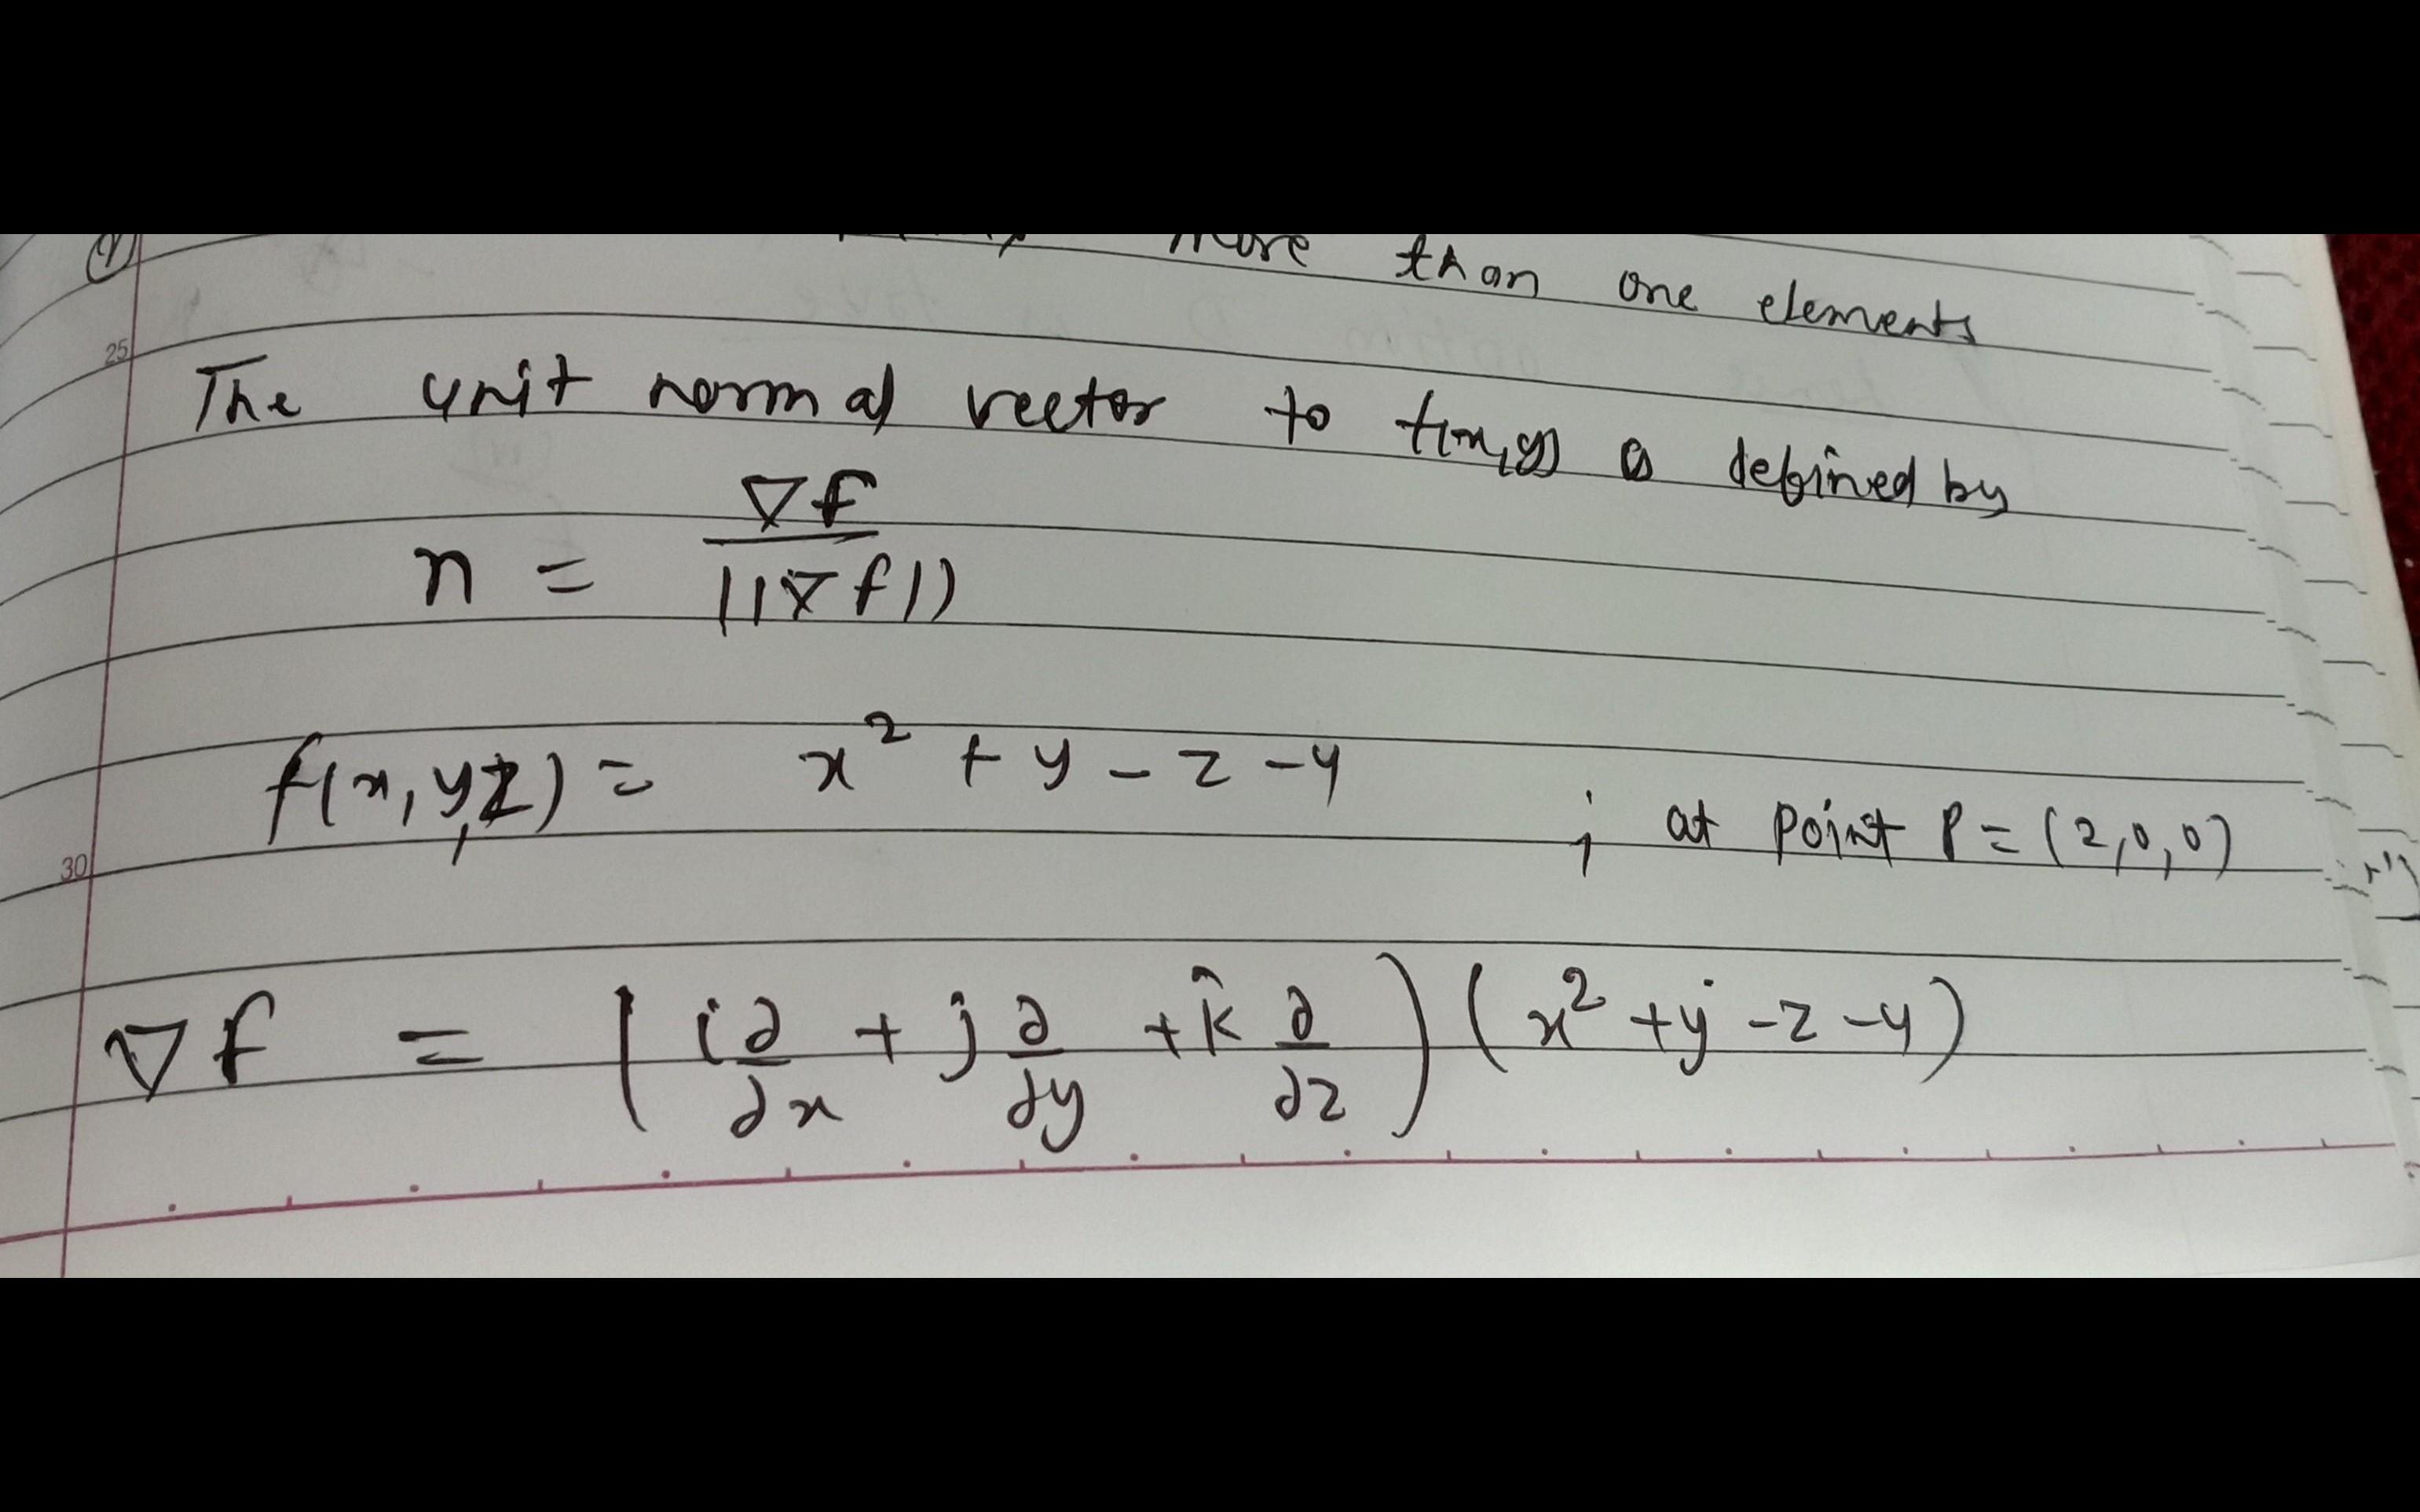 ①
more than one elements
25
The unit normal vector to f(x,y) is defined by
n = ∇f / ||∇f||
f(x,y,z) = x² + y - z - 4 ; at point P = (2,0,0)
30
∇f = (i ∂/∂x + j ∂/∂y + k̂ ∂/∂z) (x² + y - z - 4)